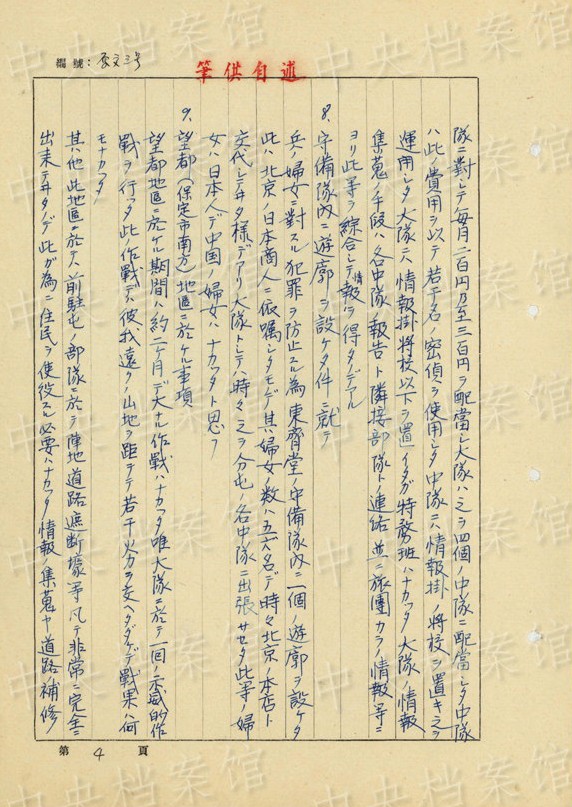 編號：灰文三号
筆供自述
隊ニ對シテ毎月二百円乃至三百円ヲ配當シ大隊ハ之ヲ四個ノ中隊ニ配當シタ中隊
ハ此ノ費用ヲ以テ若干名ノ密偵ヲ使用シタ中隊ニハ情報掛ノ将校ヲ置キ之ヲ
運用シタ大隊ニハ情報掛将校以下ヲ置イタガ特務班ハナカッタ大隊ノ情報
集蒐ノ手段ハ各中隊ノ報告ト隣接部隊トノ連絡並ニ旅團カラノ情報等ニ
ヨリ此等ヲ綜合シテ情報ヲ得タノデアル
8．守備隊内ニ遊廓ヲ設ケタ件ニ就テ
兵ノ婦女ニ對スル犯罪ヲ防止スル為東齊堂ノ守備隊内ニ一個ノ遊廓ヲ設ケタ
此ハ北京ノ日本商人ニ依嘱シタモノデ其ノ婦女ノ数ハ五六名デ時々北京ノ本店ト
交代シテヰタ様デアリ大隊トシテハ時々之ヲ分屯ノ各中隊ニ出張サセタ此等ノ婦
女ハ日本人デ中国ノ婦女ハナカッタト思フ
9．望都（保定市南方）地區ニ於ケル事項
望都地區ニ於ケル期間ハ約二ケ月デ大ナル作戰ハナカッタ唯大隊ニ於テ一回ノ示威的作
戰ヲ行ッタ此ノ作戰デハ彼我遠ク山地ヲ距テテ若干火力ヲ交ヘタダケデ戰果ハ何
モナカッタ
其ノ他此地區ニ於テハ前駐屯ノ部隊ニ於テ陣地道路遮断壕等凡テ非常ニ完全ニ
出来テヰタノデ此ガ為ニ住民ヲ使役スル必要ハナカッタ情報ノ集蒐ヤ道路ノ補修
第 4 頁
中央档案馆